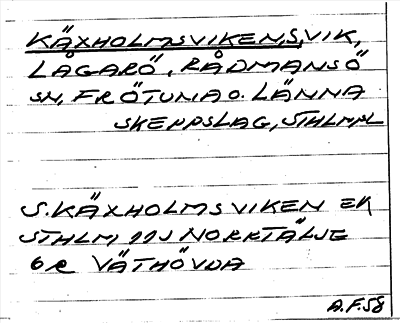 KÄXHOLMSVIKEN, S, VIK,
LÅGARÖ, RÅDMANSÖ
SN, FRÖTUNA O. LÄNNA
SKEPPSLAG, STHLM L
S. KÄXHOLMSVIKEN EK
STHLM 11J NORRTÄLJE
6 R VÄTHÖVJA
A.F.58